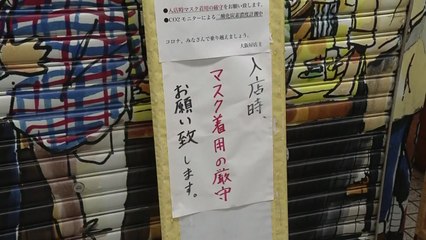 ●入店時マスク着用の厳守をお願い致します。
●CO2モニターによる二酸化炭素濃度計測中
コロナ、みなさんで乗り越えましょう。
大阪屋店主
入店時、
マスク着用の厳守
お願い致します。